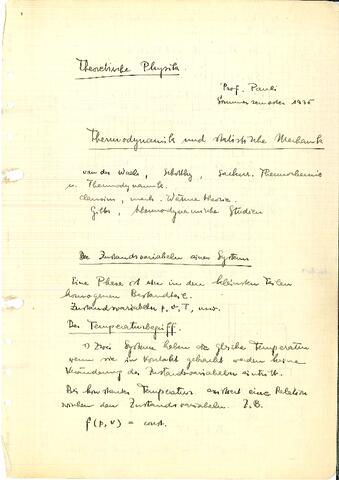 Theoretische Physik.
Prof. Pauli
Sommersemester 1935
Thermodynamik und statistische Mechanik
van der Waals, Schottky, Sackur. Thermochemie
u. Thermodynamik.
Clausius, mech. Wärmetheorie.
Gibbs, thermodynamische Studien
Die Zustandsvariabeln eines Systems
Eine Phase ist ein in den kleinsten Teilen
homogener Bestandteil.
Zustandsvariabeln p, v, T, usw.
Der Temperaturbegriff.
1) Zwei Systeme haben die gleiche Temperatur
wenn sie in Kontakt gebracht werden keine
Veränderung der Zustandsvariabeln eintritt.
Bei konstanter Temperatur existiert eine Relation
zwischen den Zustandsvariabeln. Z.B.
f(p, v) = const.